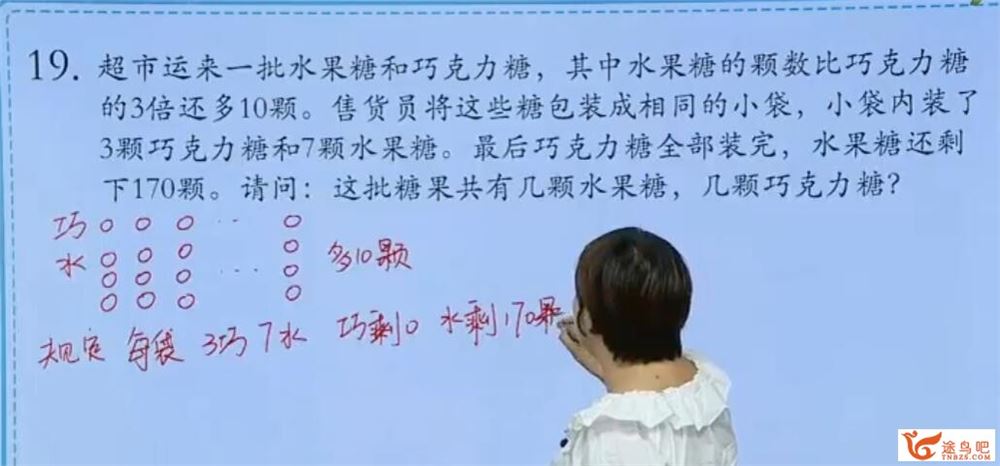 19. 超市运来一批水果糖和巧克力糖，其中水果糖的颗数比巧克力糖
的3倍还多10颗。售货员将这些糖包装成相同的小袋，小袋内装了
3颗巧克力糖和7颗水果糖。最后巧克力糖全部装完，水果糖还剩
下170颗。请问：这批糖果共有几颗水果糖，几颗巧克力糖？
巧
水 多10颗
规定 每袋 3巧7水 巧剩0 水剩170颗
途鸟吧
TNBZS.COM